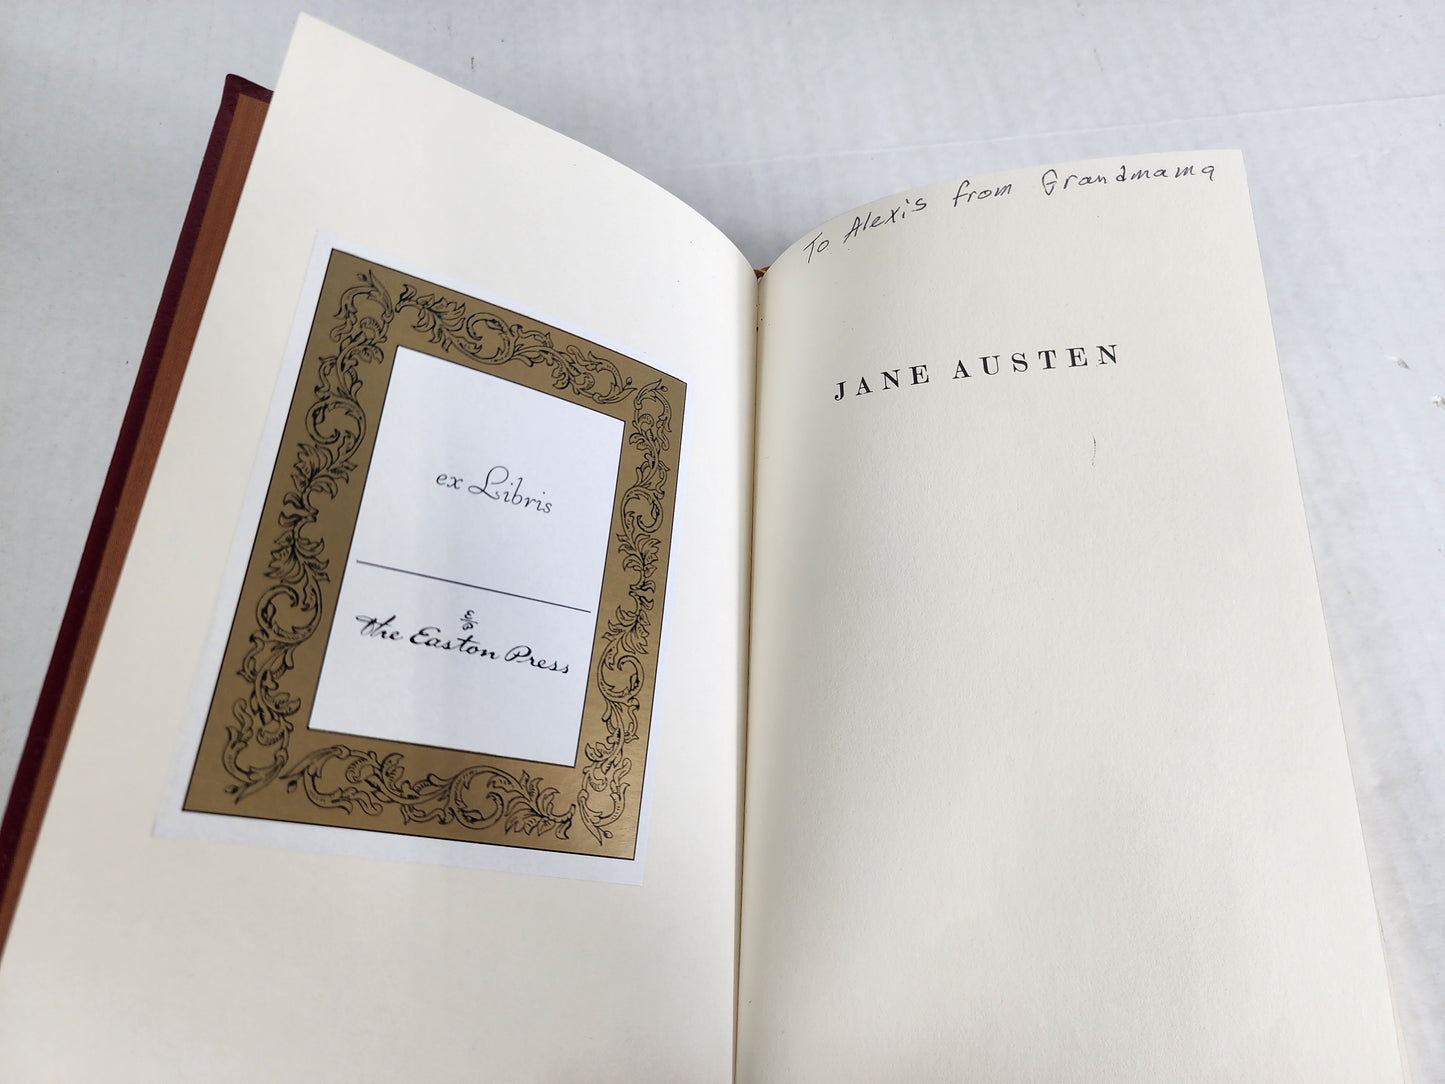 ex Libris
EP
the Easton Press
To Alexis from Grandmama
JANE AUSTEN